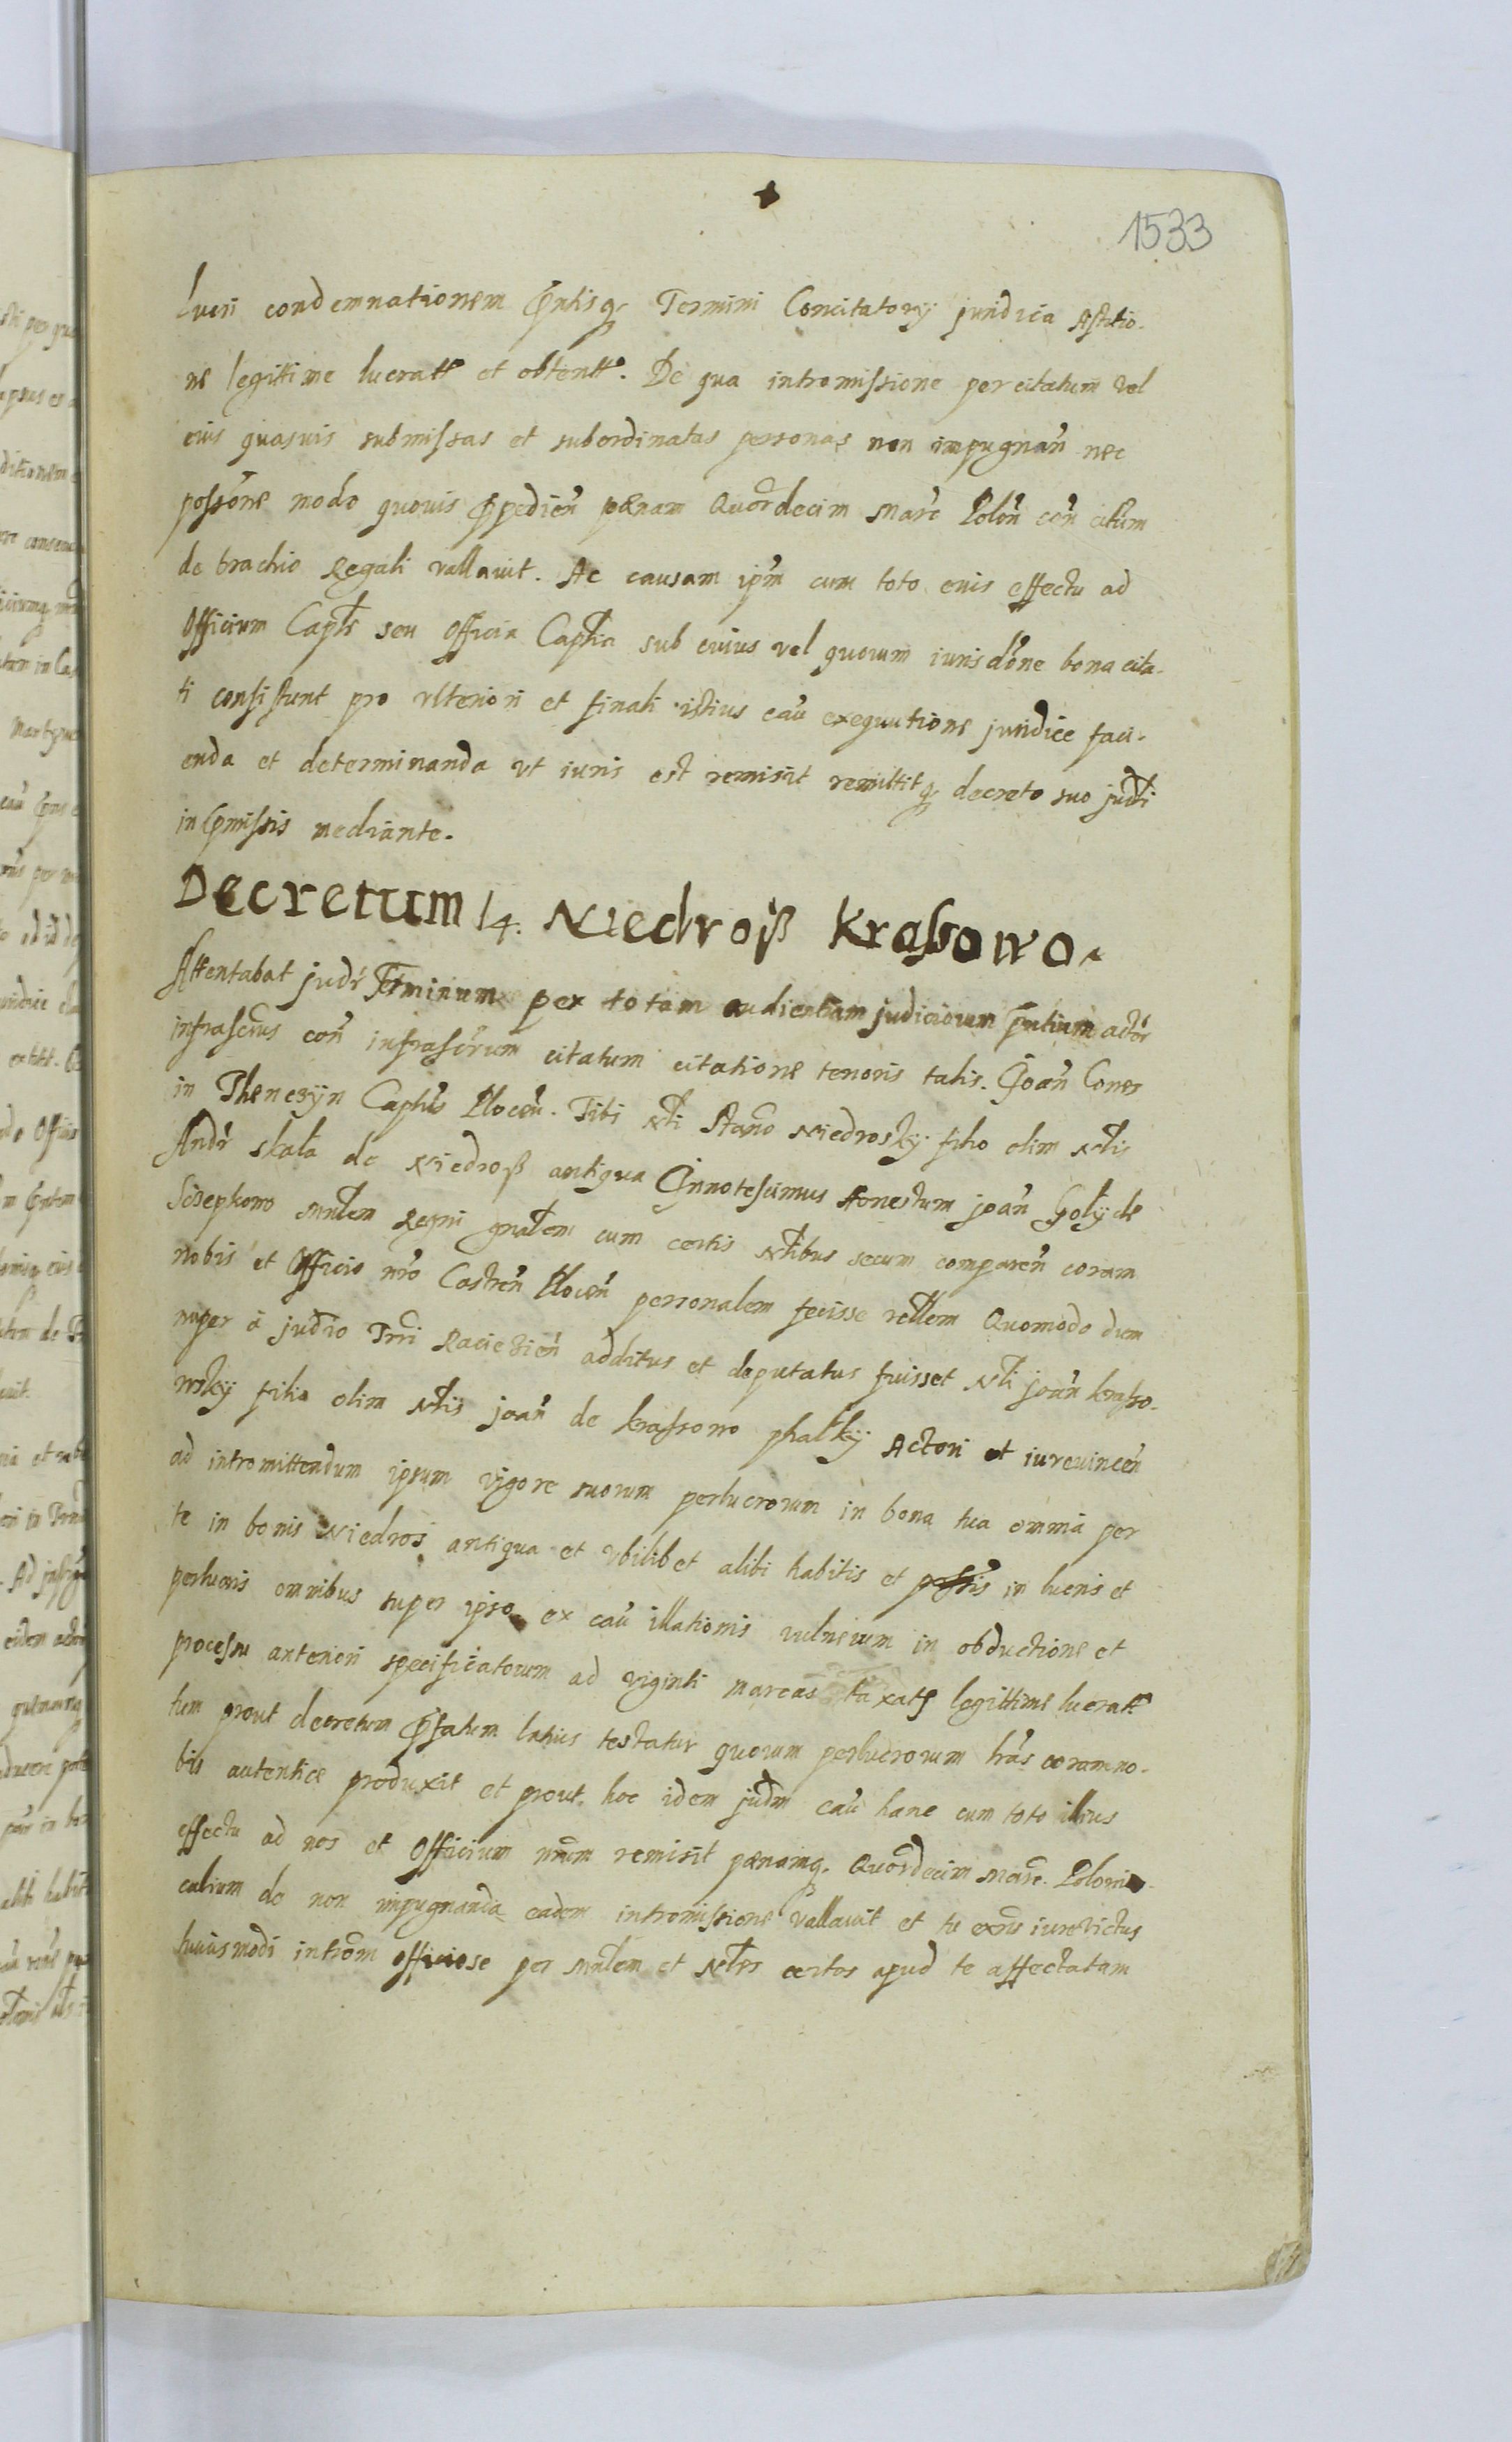 1533
lucri condemnationem Pntisq Termini Concitatory juridica Astitio-
ne legittime lucratt et obtentt. De qua intromissione per citatum vel
eius quasuis submissas et subordinatas personas non impugnan nec
possone modo quouis Ppedien pœnam Quordecim Marc Polon con citum
de brachio Regali vallauit. Ac causam ipm cum toto euis effectu ad
Officium Capts seu officia Captia sub cuius vel quorum iurisdone bona cita-
ti consistunt pro vlteriori et finali istius cau exequutione juridice faci-
enda et determinanda vt iuris est remisit remittitq decreto suo judti
in Pmissis mediante.
Decretum 14. Niedroß Krassowo.
Attentabat judr Terminum per totam audientiam judiciorum Pntium actor
infrascrus con infrascrum citatum citatione tenoris talis. Joan Comes
in Thenczyn Captus Plocen. Tibi Nti Stano Niedrosky filio olim Ntis
Andr skala de Niedroß antiqua Innotescimus Honestum joan Goly de
Sczepkowo mnlem Regni gnalem cum certis Ntibus secum comparen coram
nobis et Officio nro Castren Plocen personalem fecisse rellem Quomodo dum
nuper a judio Trri Raciezien additus et deputatus fuisset Nti joan krasso-
wsky filio olim Ntis joan de krassowo phalky Actori et iureuincen
ad intromittendum ipsum vigore suorum perlucrorum in bona tua omnia per
te in bonis Niedros antiqua et vbilibet alibi habitis et in lucris et
perlucris omnibus super ipso ex cau illationis vulnerum in obductione et
processu anteriori specificatorum ad viginti marcas taxats legittime lucratt
tum prout decretum Pfatum latius testatur quorum perlucrorum lras coram no-
bis autentice produxit et prout hoc idem judm cau hanc cum toto illius
effectu ad nos et Officium nrum remisit pœnamq. Quordecim Marc. Poloni-
calium de non impugnanda eadem intromissione vallauit et tu exns iurevictus
huiusmodi introm officiose per mnlem et Ntes certos apud te affectatam